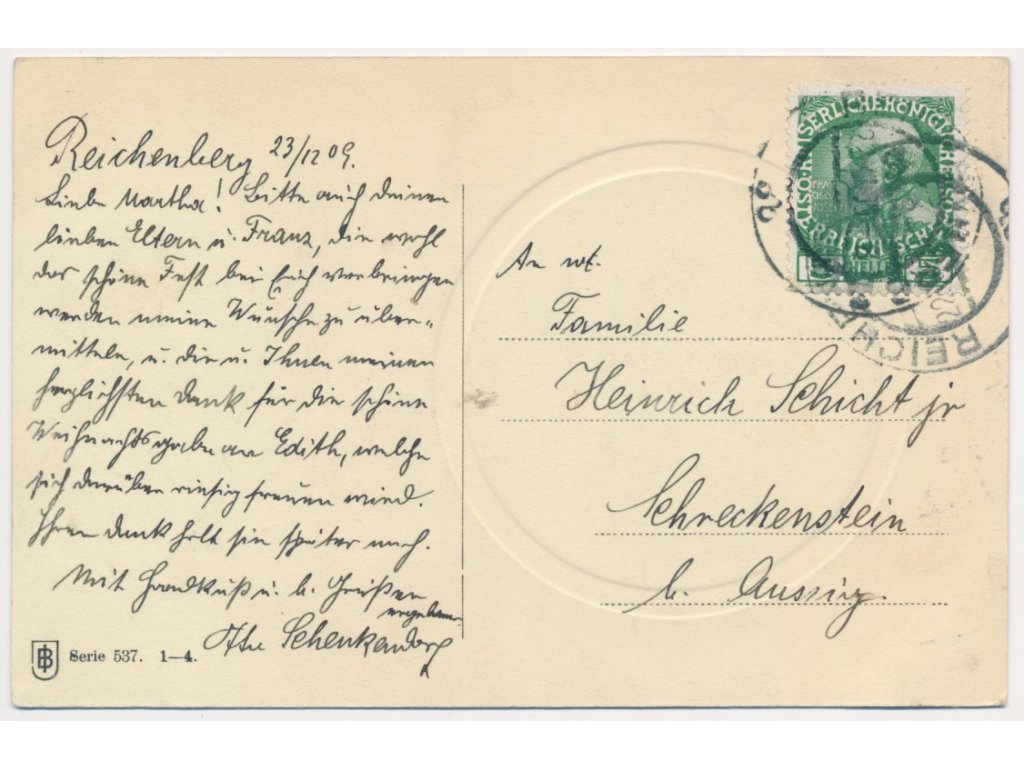 Reichenberg 23/12 09.
Liebe Martha! Bitte auch deinen
lieben Eltern u. Franz, die wohl
das schöne Fest bei Euch verbringen
werden meine Wünsche zu über-
mitteln, u. die u. Ihnen meinen
herzlichsten Dank für die schöne
Weihnachtsgabe an Edith, welche
sich darüber riesig freuen wird.
Ihren Dank holt sie später nach.
Mit Handkuß u. b. Grüßen
ergebener
Schenkendorf
Serie 537. 1—4.
An
Familie
Heinrich Schicht jr
Schreckenstein
b. Aussig.
REICH